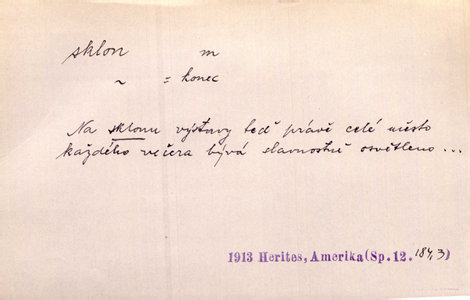 sklon m
~ = konec
Na sklonu výstavy teď právě celé město
každého večera bývá slavnostně osvětleno...
1913 Herites, Amerika (Sp. 12. 184,3)